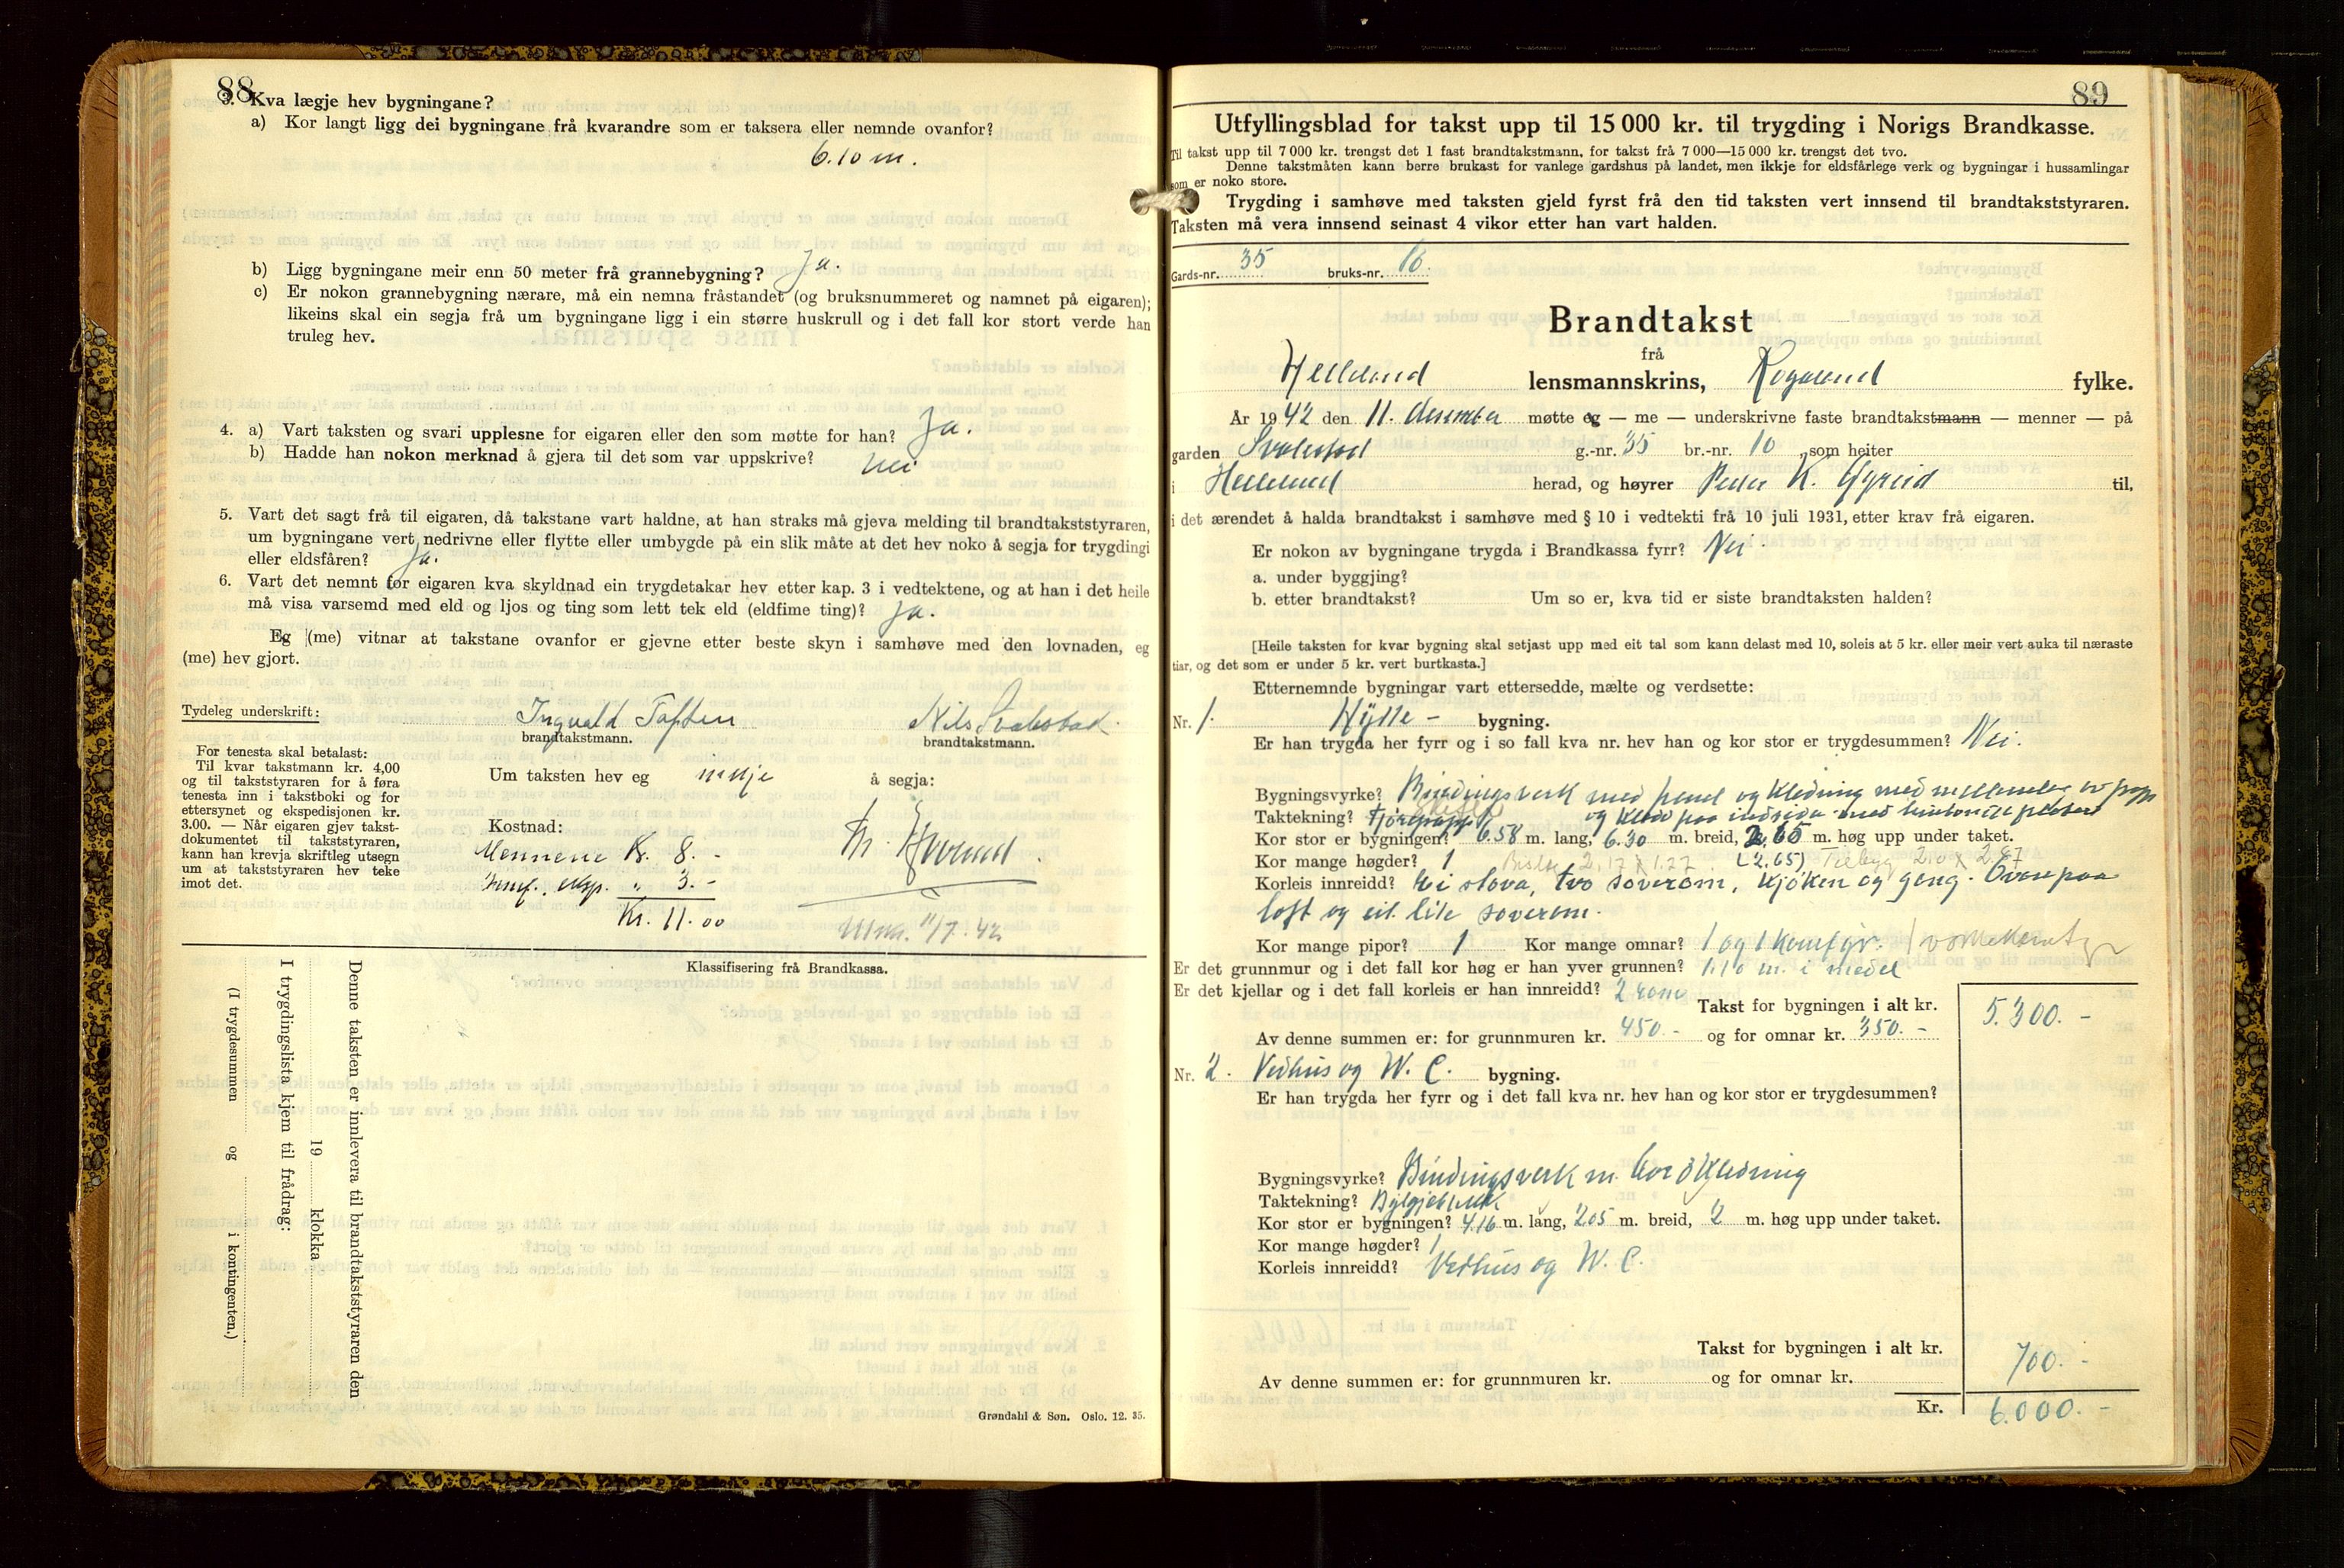 88
3. Kva lægje hev bygningane?
a) Kor langt ligg dei bygningane frå kvarandre som er taksera eller nemnde ovanfor?
6.10 m.
b) Ligg bygningane meir enn 50 meter frå grannebygning? Ja.
c) Er nokon grannebygning nærare, må ein nemna fråstandet (og bruksnummeret og namnet på eigaren);
likeins skal ein segja frå um bygningane ligg i ein større huskrull og i det fall kor stort verde han
truleg hev.
4. a) Vart taksten og svari upplesne for eigaren eller den som møtte for han? Ja.
b) Hadde han nokon merknad å gjera til det som var uppskrive? Nei
5. Vart det sagt frå til eigaren, då takstane vart haldne, at han straks må gjeva melding til brandtakststyraren,
um bygningane vert nedrivne eller flytte eller umbygde på ein slik måte at det hev noko å segja for trygdingi
eller eldsfåren? Ja.
6. Vart det nemnt for eigaren kva skyldnad ein trygdetakar hev etter kap. 3 i vedtektene, og at han i det heile
må visa varsemd med eld og ljos og ting som lett tek eld (eldfime ting)? Ja.
Eg (me) vitnar at takstane ovanfor er gjevne etter beste skyn i samhøve med den lovnaden, eg
(me) hev gjort.
Tydeleg underskrift: Ingvald Toften Nils Svalestad
brandtakstmann. brandtakstmann.
For tenesta skal betalast:
Til kvar takstmann kr. 4,00
og til takststyraren for å føra
tenesta inn i takstboki og for
ettersynet og ekspedisjonen kr.
3.00. — Når eigaren gjev takst-
dokumentet til takststyraren,
kann han krevja skriftleg utsegn
um at takststyraren hev teke
imot det.
Um taksten hev eg inkje å segja:
Kostnad:
Mennene Kr. 8. -
Innf. eksp. " 3. -
Kr. 11.00
Klassifisering frå Brandkassa.
Denne taksten er innlevera til brandtakststyraren den
19 klokka
I trygdingslista kjem til frådrag:
(I trygdesummen og i kontingenten.)
Grøndahl & Søn. Oslo. 12. 35.
89
Utfyllingsblad for takst upp til 15 000 kr. til trygding i Norigs Brandkasse.
Til takst upp til 7 000 kr. trengst det 1 fast brandtakstmann, for takst frå 7 000—15 000 kr. trengst det tvo.
Denne takstmåten kann berre brukast for vanlege gardshus på landet, men ikkje for eldsfårlege verk og bygningar i hussamlingar
som er noko store.
Trygding i samhøve med taksten gjeld fyrst frå den tid taksten vert innsend til brandtakststyraren.
Taksten må vera innsend seinast 4 vikor etter han vart halden.
Gards-nr. 35 bruks-nr. 16.
Brandtakst
frå
Helleland lensmannskrins, Rogaland fylke.
År 1942 den 11. desember møtte eg — me — underskrivne faste brandtakstmann — menner — på
garden Svalestad g.-nr. 35 br.-nr. 10 som heiter
i Helleland herad, og høyrer Peder K. til,
i det ærendet å halda brandtakst i samhøve med § 10 i vedtekti frå 10 juli 1931, etter krav frå eigaren.
Er nokon av bygningane trygda i Brandkassa fyrr? Nei
a. under byggjing?
b. etter brandtakst? Um so er, kva tid er siste brandtaksten halden?
[Heile taksten for kvar bygning skal setjast upp med eit tal som kann delast med 10, soleis at 5 kr. eller meir vert auka til næraste
tiar, og det som er under 5 kr. vert burtkasta.]
Etternemnde bygningar vart ettersedde, mælte og verdsette:
Nr. 1. Hytte - bygning.
Er han trygda her fyrr og i so fall kva nr. hev han og kor stor er trygdesummen? Nei.
Bygningsvyrke? Bindingsverk med panel og kledning med mellomlag av papp
og kledd paa indsida med plater
Taktekning?
Kor stor er bygningen? 6.58 m. lang, 6.30 m. breid, 2.65 m. høg upp under taket.
Kor mange høgder? 1 2.17 x 1.27 (2.65) Tilbyg 2.0 x 2.87
Korleis innreidd? Ei stova, tvo soverom, kjøken og gang. Ovanpaa
loft og eit lite soverom.
Kor mange pipor? 1 Kor mange omnar? 1 og 1 komfyr.
Er det grunnmur og i det fall kor høg er han yver grunnen? 1.10 m. i medel
Er det kjellar og i det fall korleis er han innreidd? 2 rom
Takst for bygningen i alt kr. 5.300. -
Av denne summen er: for grunnmuren kr. 450. - og for omnar kr. 350. -
Nr. 2. Vedhus og W. C. bygning.
Er han trygda her fyrr og i det fall kva nr. hev han og kor stor er trygdesummen?
Bygningsvyrke? Bindingsverk m. bordkledning
Taktekning? Bylgjeblekk
Kor stor er bygningen? 4.16 m. lang, 2.05 m. breid, 2 m. høg upp under taket.
Kor mange høgder? 1
Korleis innreidd? Vedhus og W. C.
Takst for bygningen i alt kr. 700. -
Av denne summen er: for grunnmuren kr. og for omnar kr.
Kr. 6.000. -